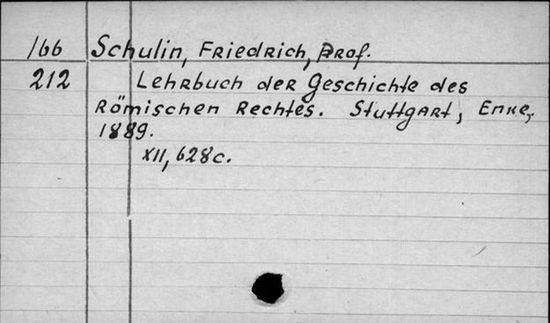 166 Schulin, Friedrich, Prof.
212 Lehrbuch der Geschichte des
Römischen Rechtes. Stuttgart, Enke,
1889.
XII, 628c.